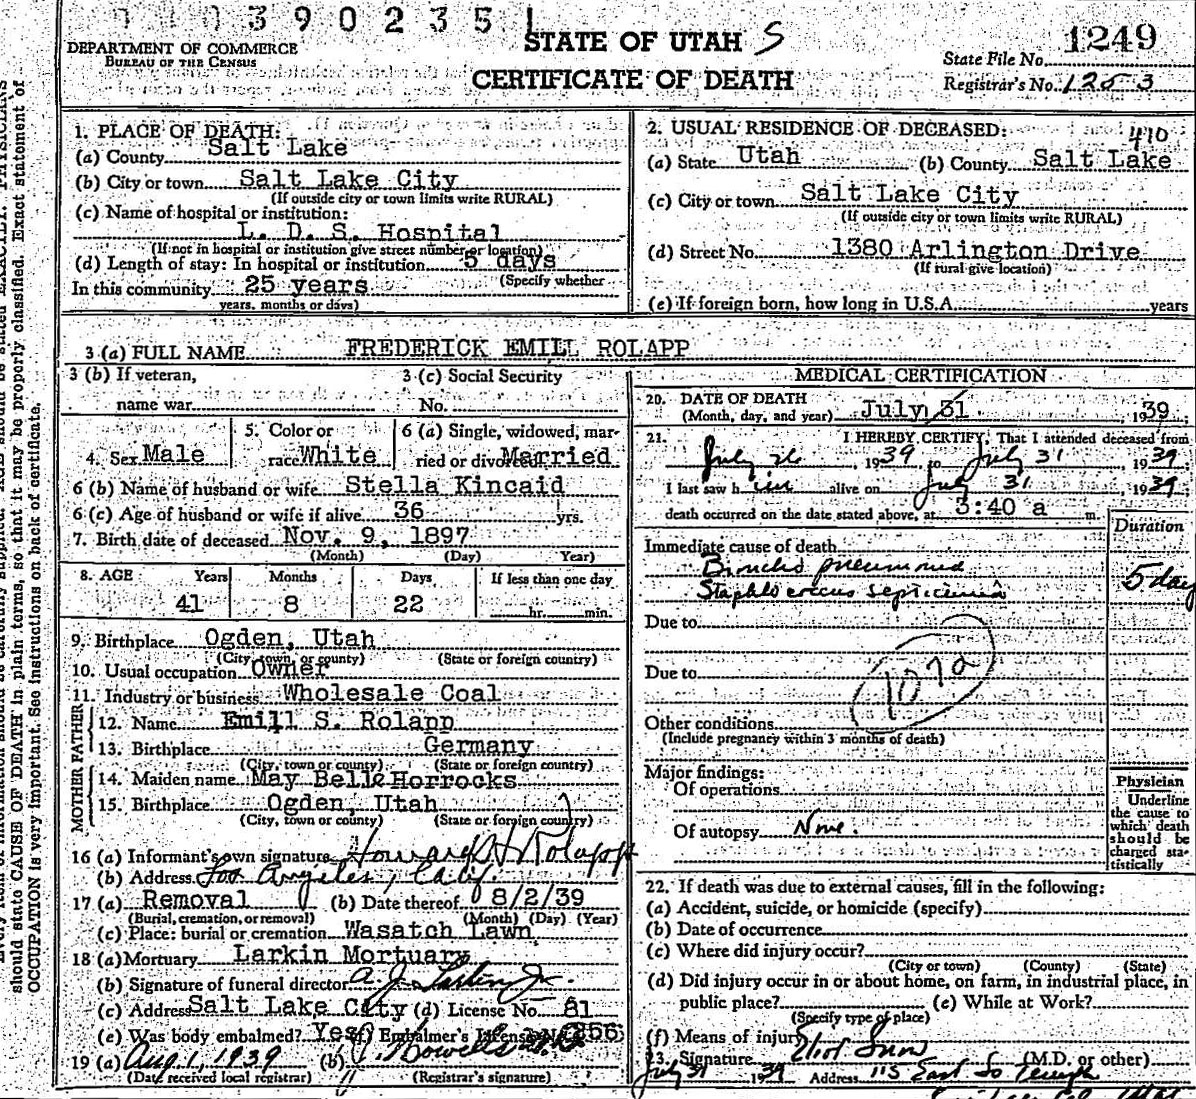 0390235
STATE OF UTAH S
1249
DEPARTMENT OF COMMERCE
BUREAU OF THE CENSUS
State File No.
CERTIFICATE OF DEATH
Registrar's No. 1253
1. PLACE OF DEATH:
(a) County Salt Lake
(b) City or town Salt Lake City
(If outside city or town limits write RURAL)
(c) Name of hospital or institution:
L. D. S. Hospital
(If not in hospital or institution give street number or location)
(d) Length of stay: In hospital or institution 5 days
(Specify whether
In this community 25 years
years, months or days)
2. USUAL RESIDENCE OF DECEASED: 410
(a) State Utah (b) County Salt Lake
(c) City or town Salt Lake City
(If outside city or town limits write RURAL)
(d) Street No. 1380 Arlington Drive
(If rural give location)
(e) If foreign born, how long in U.S.A. years
3 (a) FULL NAME FREDERICK EMILL ROLAPP
3 (b) If veteran,
name war
3 (c) Social Security
No.
4. Sex Male
5. Color or
race White
6 (a) Single, widowed, mar-
ried or divorced Married
6 (b) Name of husband or wife Stella Kincaid
6 (c) Age of husband or wife if alive 36 yrs.
7. Birth date of deceased Nov. 9, 1897
(Month) (Day) Year)
8. AGE Years Months Days If less than one day
41 8 22 hr. min.
9. Birthplace Ogden, Utah
(City, town, or county) (State or foreign country)
10. Usual occupation Owner
11. Industry or business Wholesale Coal
FATHER
12. Name Emill S. Rolapp
13. Birthplace Germany
(City, town or county) (State or foreign country)
MOTHER
14. Maiden name May Belle Horrocks
15. Birthplace Ogden, Utah
(City, town or county) (State or foreign country)
16 (a) Informant's own signature Howard H Rolapp
(b) Address Los Angeles, Calif.
17 (a) Removal (b) Date thereof 8/2/39
(Burial, cremation, or removal) (Month) (Day) (Year)
(c) Place: burial or cremation Wasatch Lawn
18 (a) Mortuary Larkin Mortuary
(b) Signature of funeral director A. J. Larkin Jr.
(c) Address Salt Lake City (d) License No. 81
(e) Was body embalmed? Yes (f) Embalmer's License No. 256
19 (a) Aug. 1, 1939 (b)
(Date received local registrar) (Registrar's signature)
MEDICAL CERTIFICATION
20. DATE OF DEATH
(Month, day, and year) July 31 1939
21. I HEREBY CERTIFY, That I attended deceased from
July 26, 1939 to July 31, 1939
I last saw him alive on July 31, 1939
death occurred on the date stated above, at 3:40 a m.
Duration
Immediate cause of death
Broncho pneumonia
Staphlococcus septicemia
5 day
Due to
Due to
107a
Other conditions
(Include pregnancy within 3 months of death)
Major findings:
Of operations
Of autopsy None.
Physician
Underline
the cause to
which death
should be
charged sta-
tistically
22. If death was due to external causes, fill in the following:
(a) Accident, suicide, or homicide (specify)
(b) Date of occurrence
(c) Where did injury occur?
(City or town) (County) (State)
(d) Did injury occur in or about home, on farm, in industrial place, in
public place? (e) While at Work?
(Specify type of place)
(f) Means of injury
23. Signature Eliot Snow (M.D. or other)
July 31 1939 Address 115 East So Temple
should state CAUSE OF DEATH in plain terms, so that it may be properly classified. Exact statement of
OCCUPATION is very important. See instructions on back of certificate.